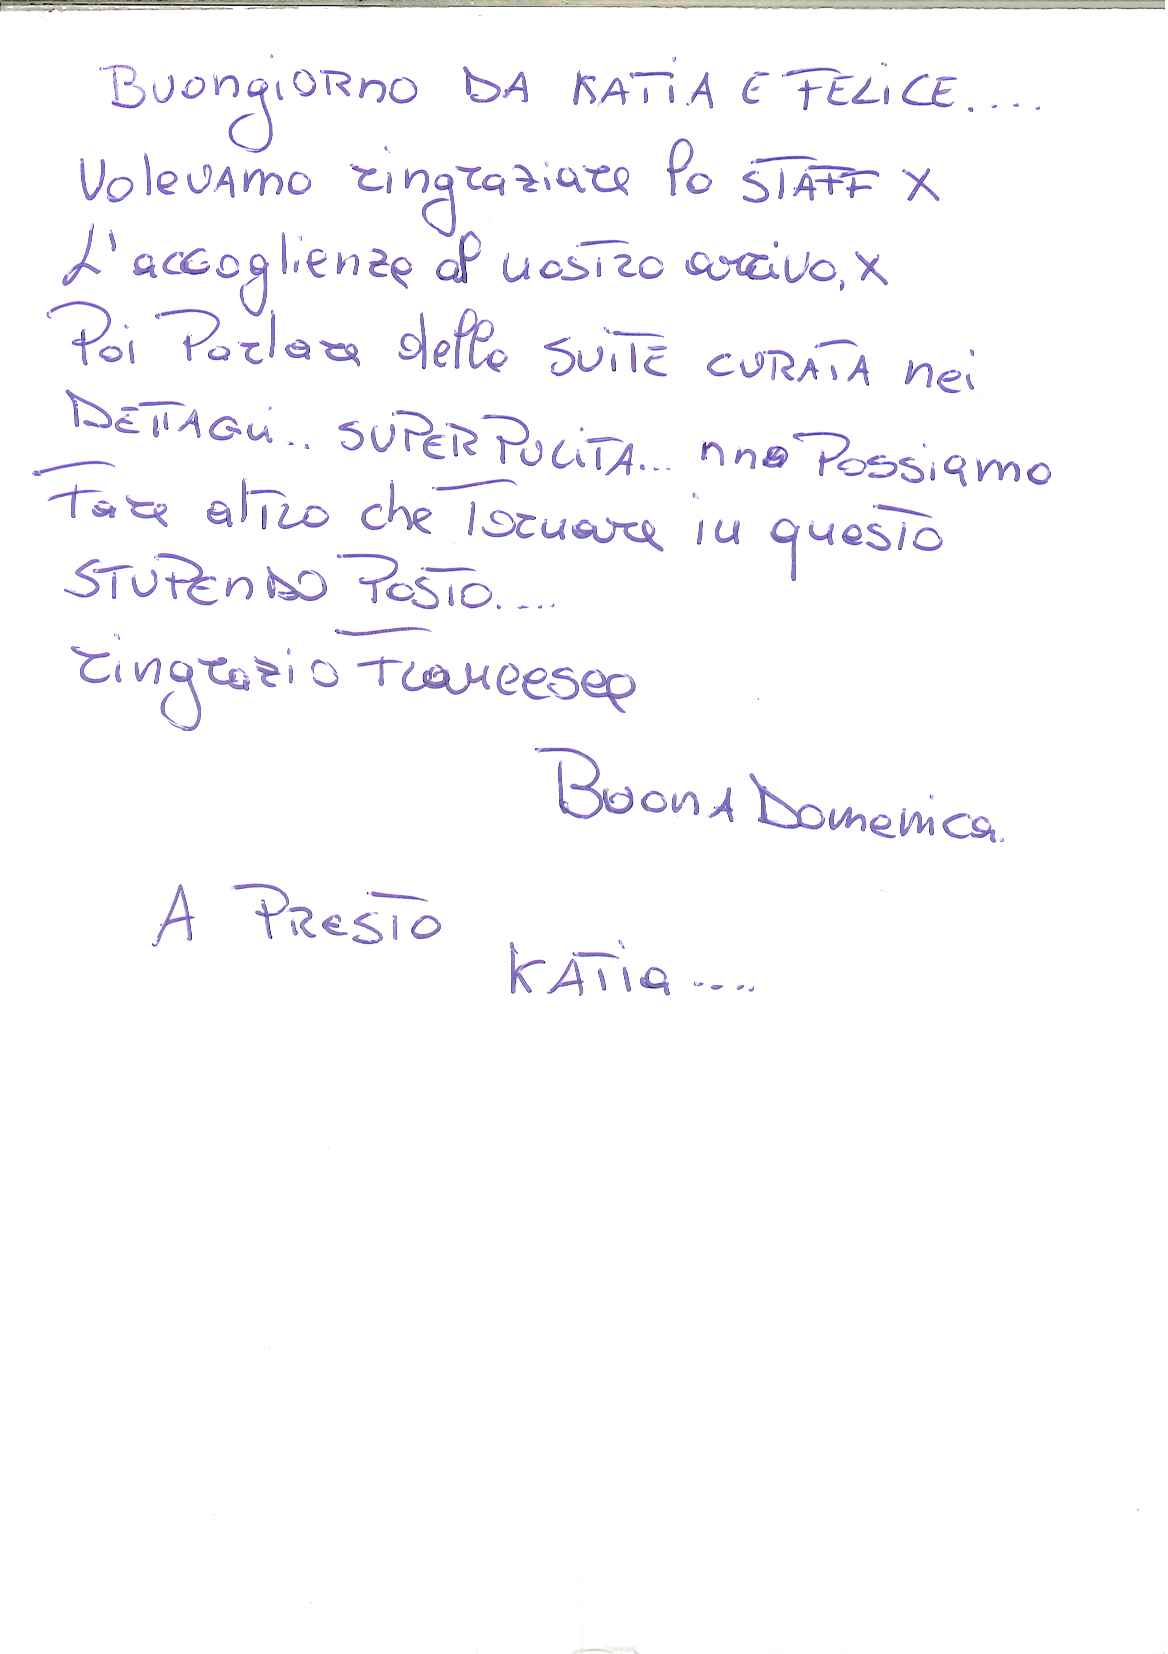 BuongiORno DA KATiA E FELiCE....
VolevAmo ringraziare lo STAFF X
L'accoglienza al nostro arrivo, X
Poi Parlare della SUiTE CURATA nei
DETTAGLi... SUPER PULiTA... nno Possiamo
Fare altro che Tornare in questo
STUPEnDO POSTO....
ringrazio Francesca
BuonA Domenica.
A PRESTO
KATia....